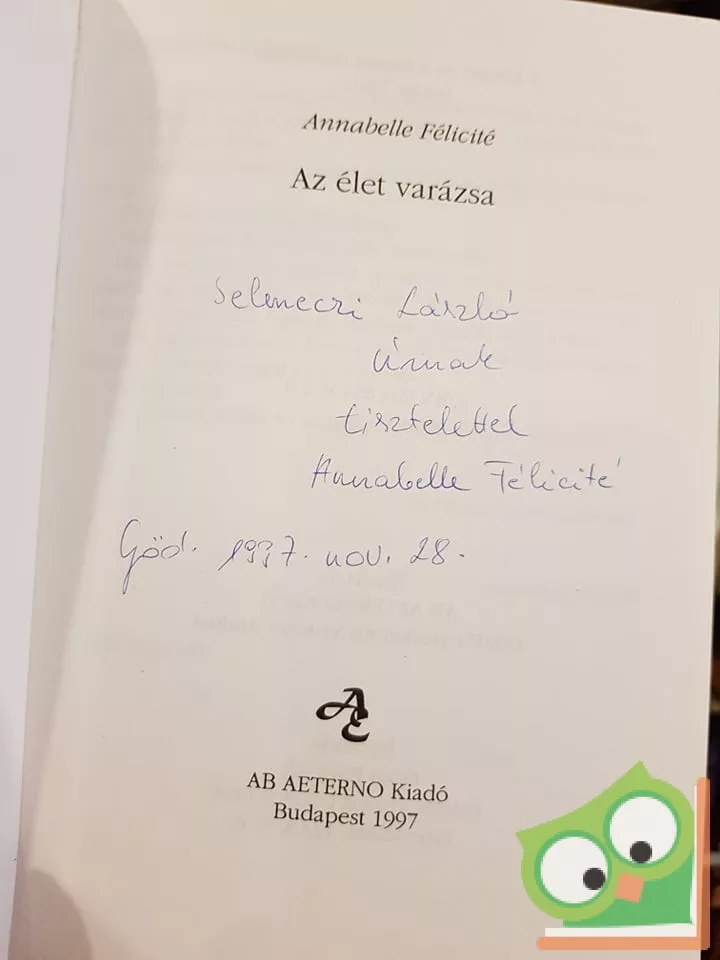 Annabelle Félicité
Az élet varázsa
Selmeczi László
Úrnak
tisztelettel
Annabelle Félicité
Göd. 1997. nov. 28.
AE
AB AETERNO Kiadó
Budapest 1997